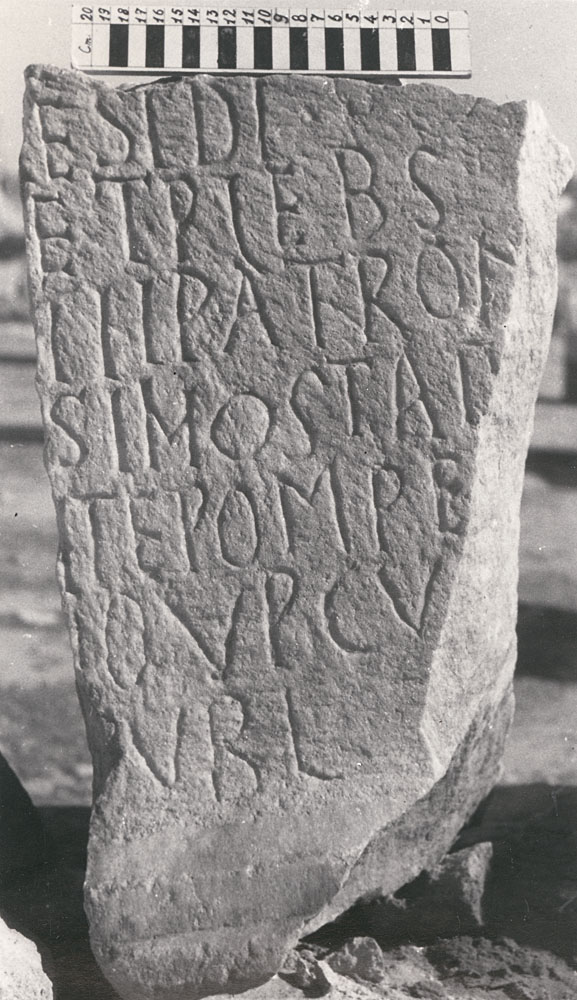 Cm. 20 19 18 17 16 15 14 13 12 11 10 9 8 7 6 5 4 3 2 1 0
ESEDE
ETPLEBS
IIIPATRON
SIMOSTAT
ITEPOMPE
OVPCV
VRL